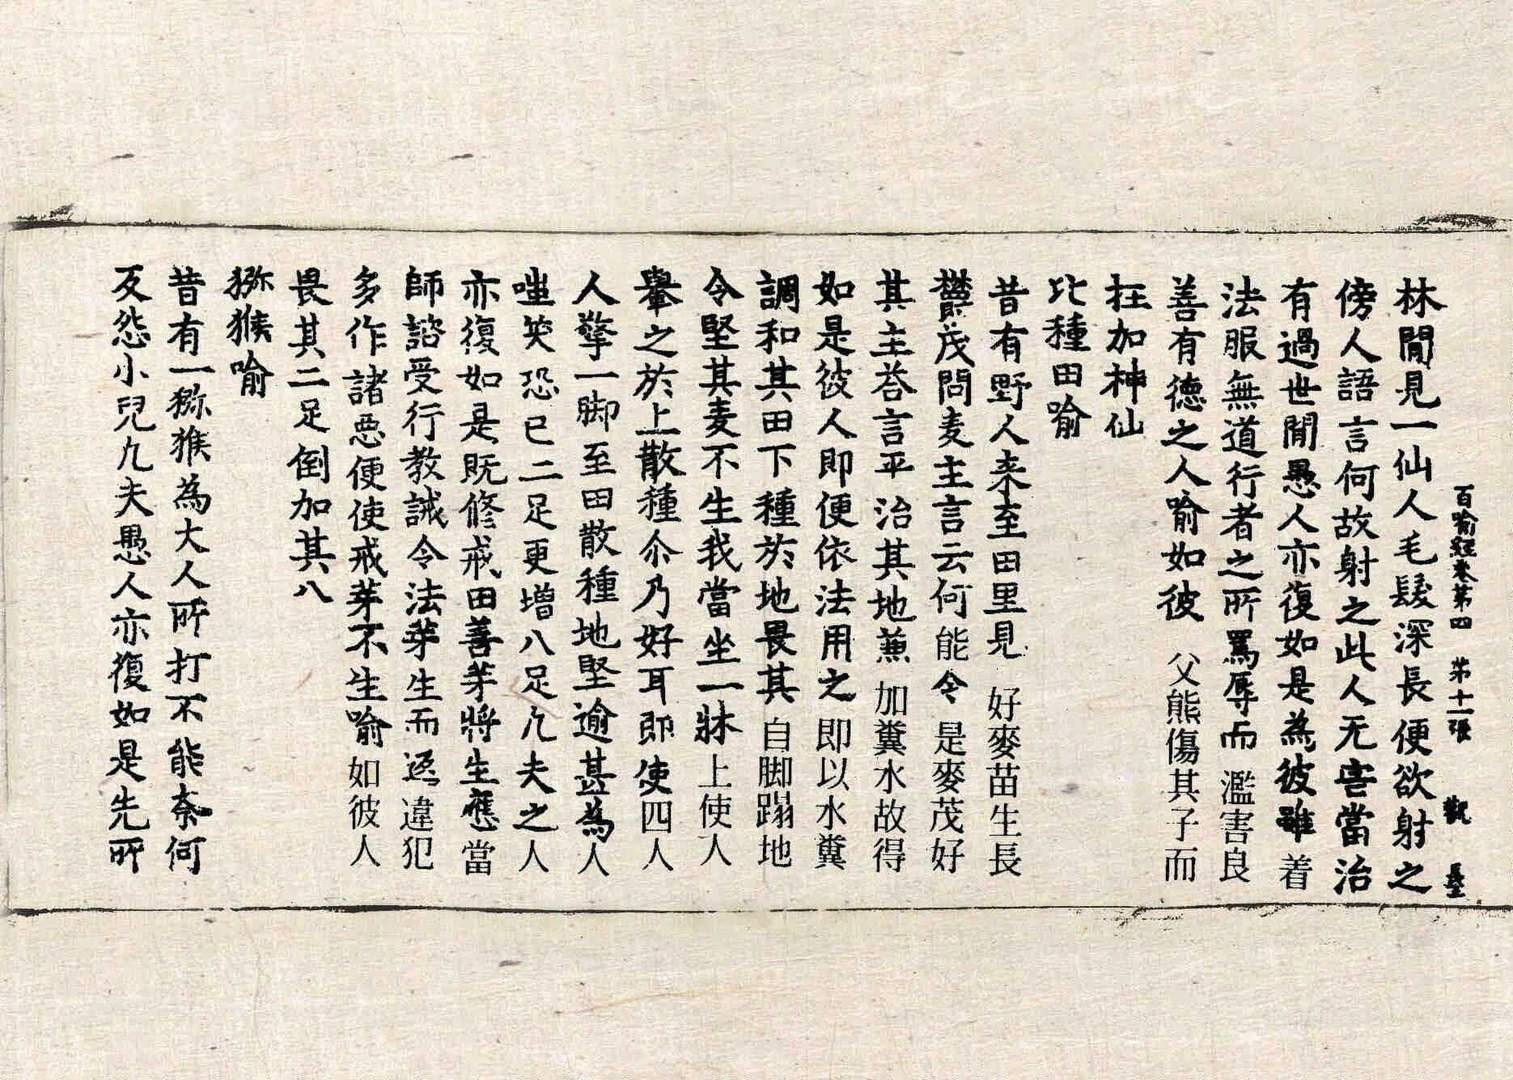 百喻經卷第四 第十一張 觀
林閒見一仙人毛髮深長便欲射之
傍人語言何故射之此人无害當治
有過世閒愚人亦復如是為彼雖着
法服無道行者之所罵辱而濫害良
善有德之人喻如彼父熊傷其子而
枉加神仙
比種田喻
昔有野人来至田里見好麥苗生長
欝茂問麦主言云何能令是麥茂好
其主荅言平治其地兼加糞水故得
如是彼人即便依法用之即以水糞
調和其田下種於地畏其自脚蹋地
令堅其麦不生我當坐一牀上使人
轝之於上散種尒乃好耳即使四人
人擎一脚至田散種地堅逾甚為人
嗤笑恐已二足更增八足凢夫之人
亦復如是既修戒田善芽將生應當
師諮受行教誡令法芽生而返違犯
多作諸惡便使戒芽不生喻如彼人
畏其二足倒加其八
獼猴喻
昔有一獼猴為大人所打不能奈何
反怨小兒凢夫愚人亦復如是先所